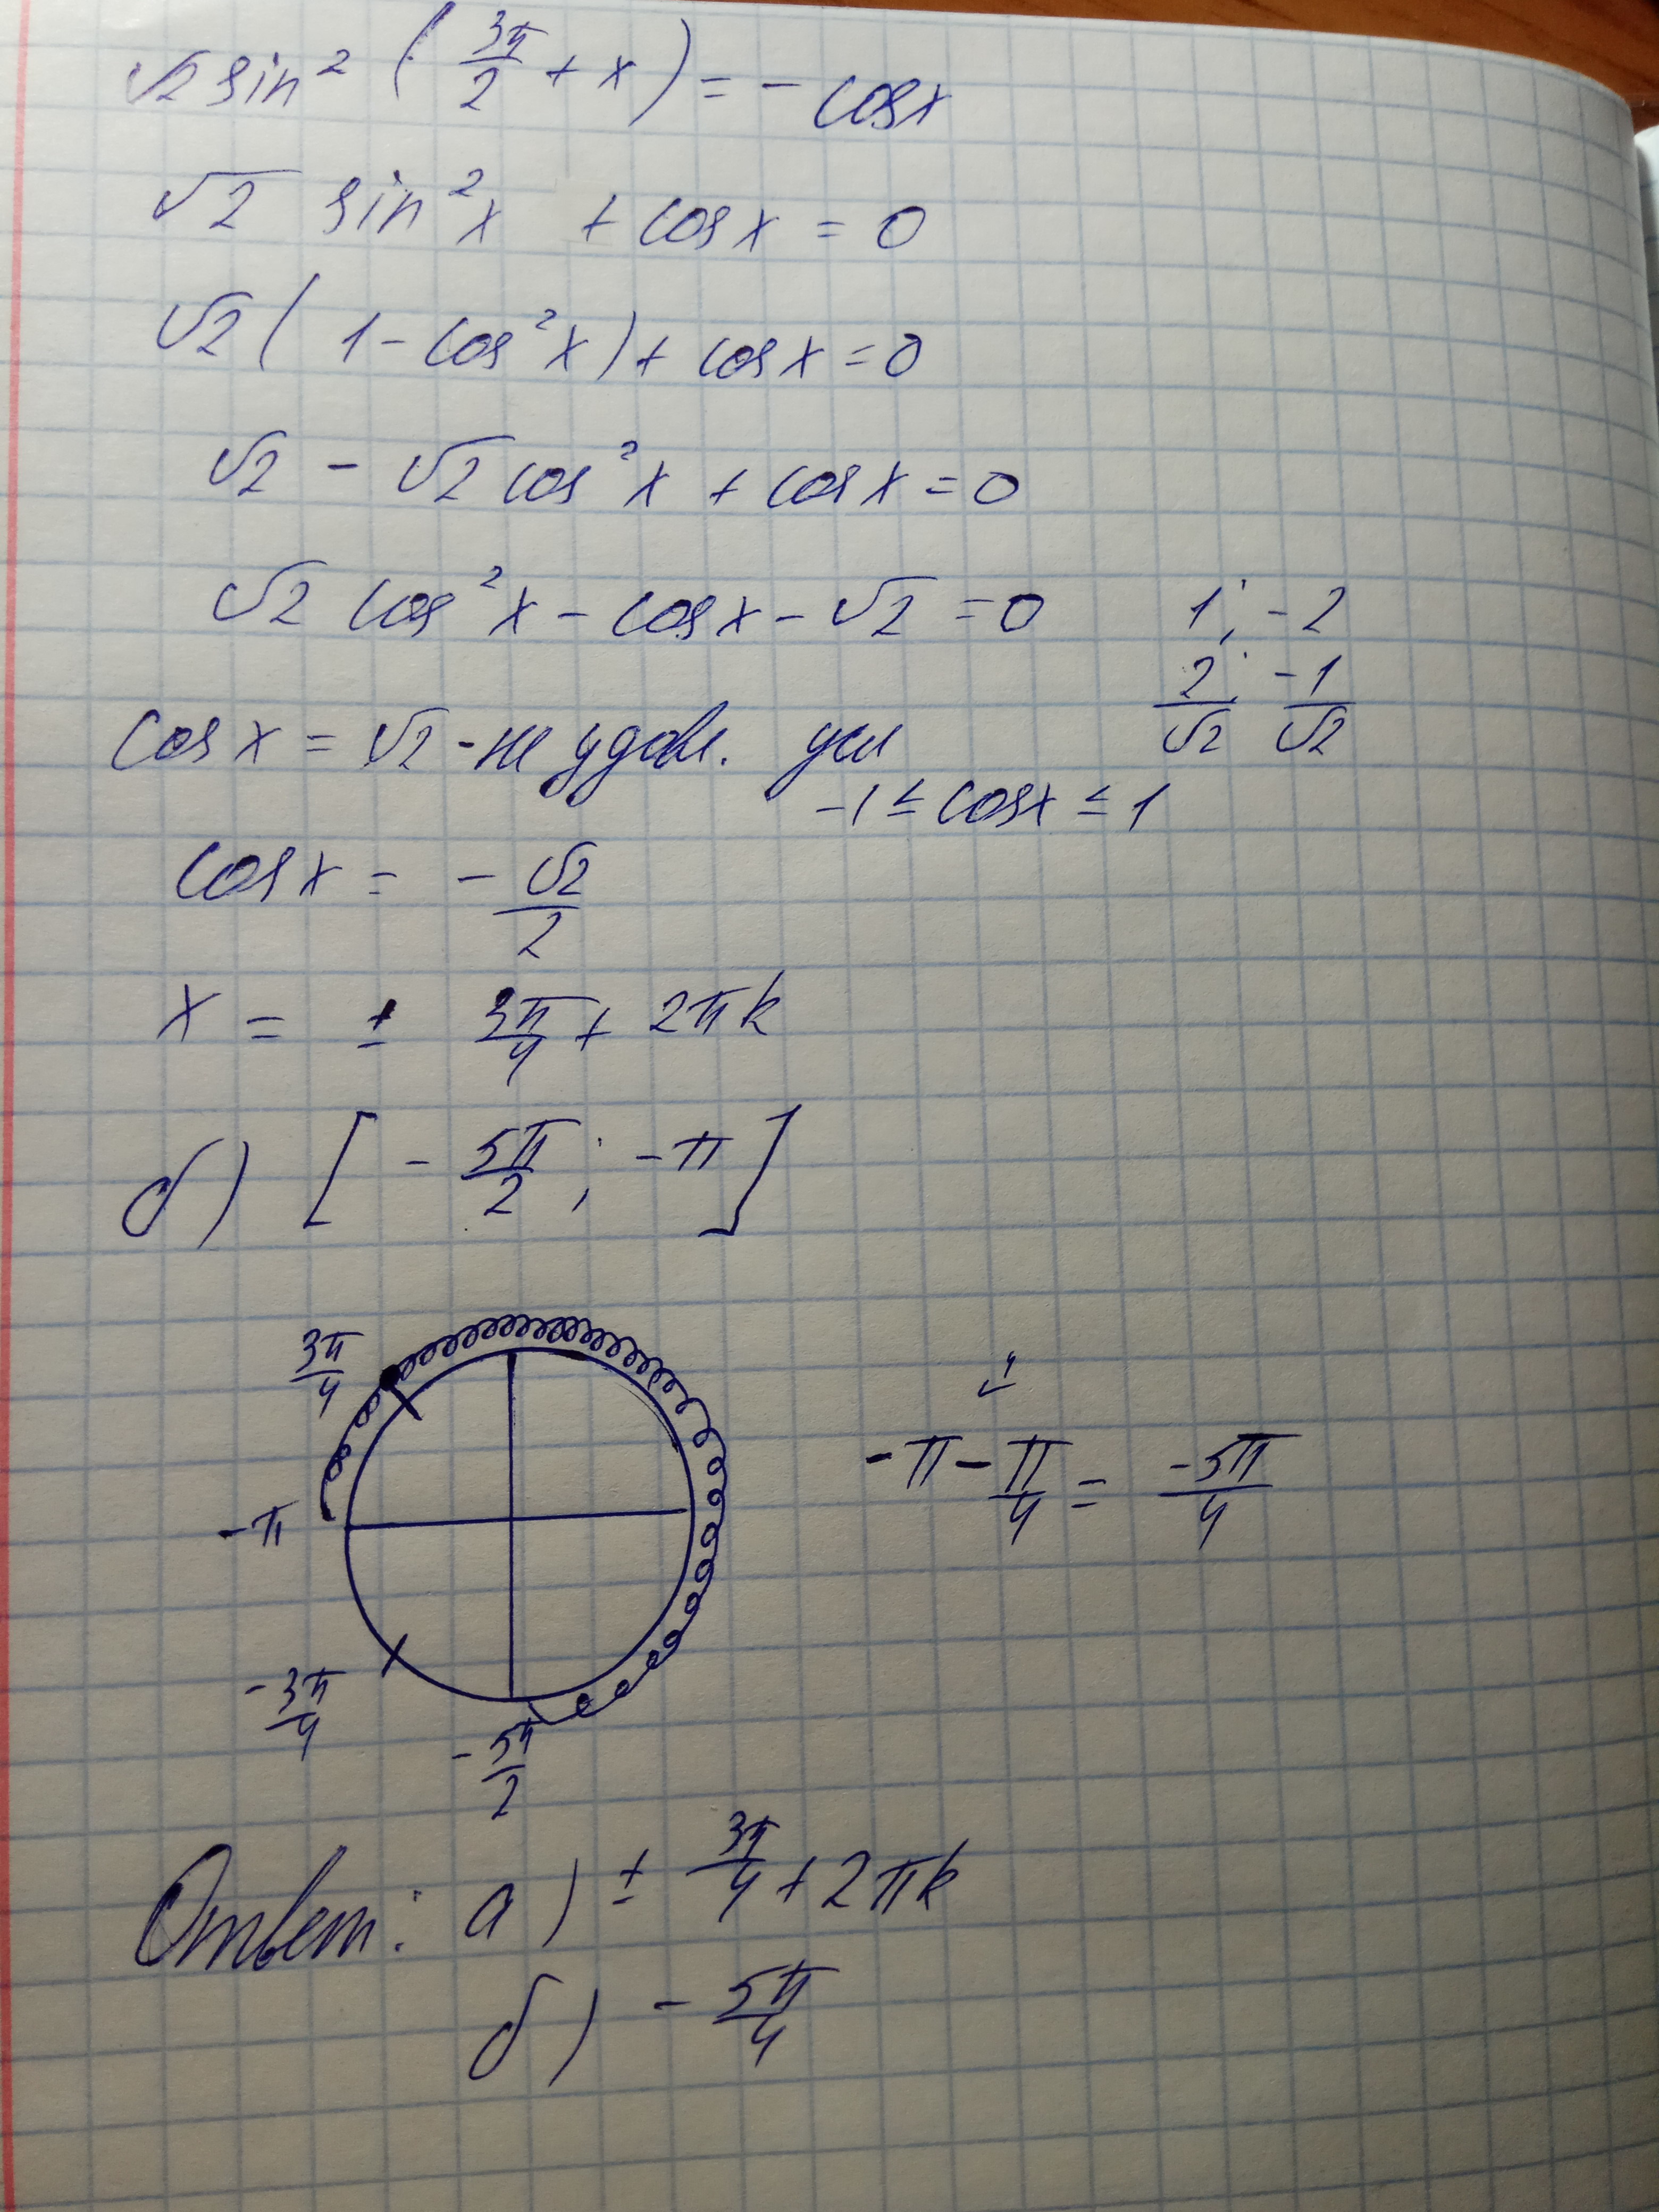 √2 sin² (3π/2 + x) = - cosx
√2 sin²x + cosx = 0
√2 (1 - cos²x) + cosx = 0
√2 - √2 cos²x + cosx = 0
√2 cos²x - cosx - √2 = 0
1; -2
2/√2; -1/√2
cosx = √2 - не удовл. усл
-1 ≤ cosx ≤ 1
cosx = - √2/2
x = ± 3π/4 + 2πk
б) [- 5π/2; -π]
3π/4
-π
-3π/4
-5π/2
-π - π/4 = -5π/4
Ответ: а) ± 3π/4 + 2πk
б) - 5π/4